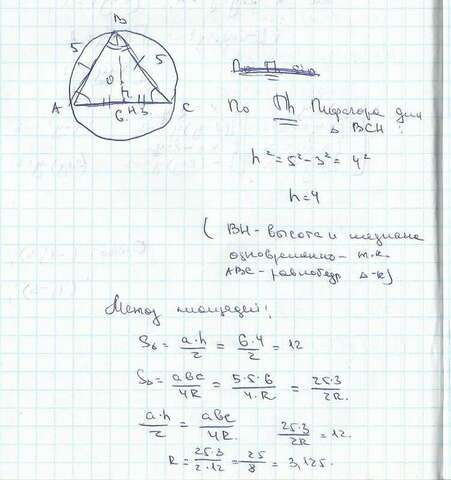 B
5 5
O
h
A H 3 C
6
По Th Пифагора для
Δ BCH:
h² = 5² - 3² = 4²
h = 4
( BH - высота и медиана
одновременно - т.к.
ABC - равнобедр. Δ-к)
Метод площадей:
S_Δ = a·h/2 = 6·4/2 = 12
S_Δ = abc/4R = 5·5·6/4·R = 25·3/2R.
a·h/2 = abc/4R. 25·3/2R = 12.
R = 25·3/2·12 = 25/8 = 3,125.